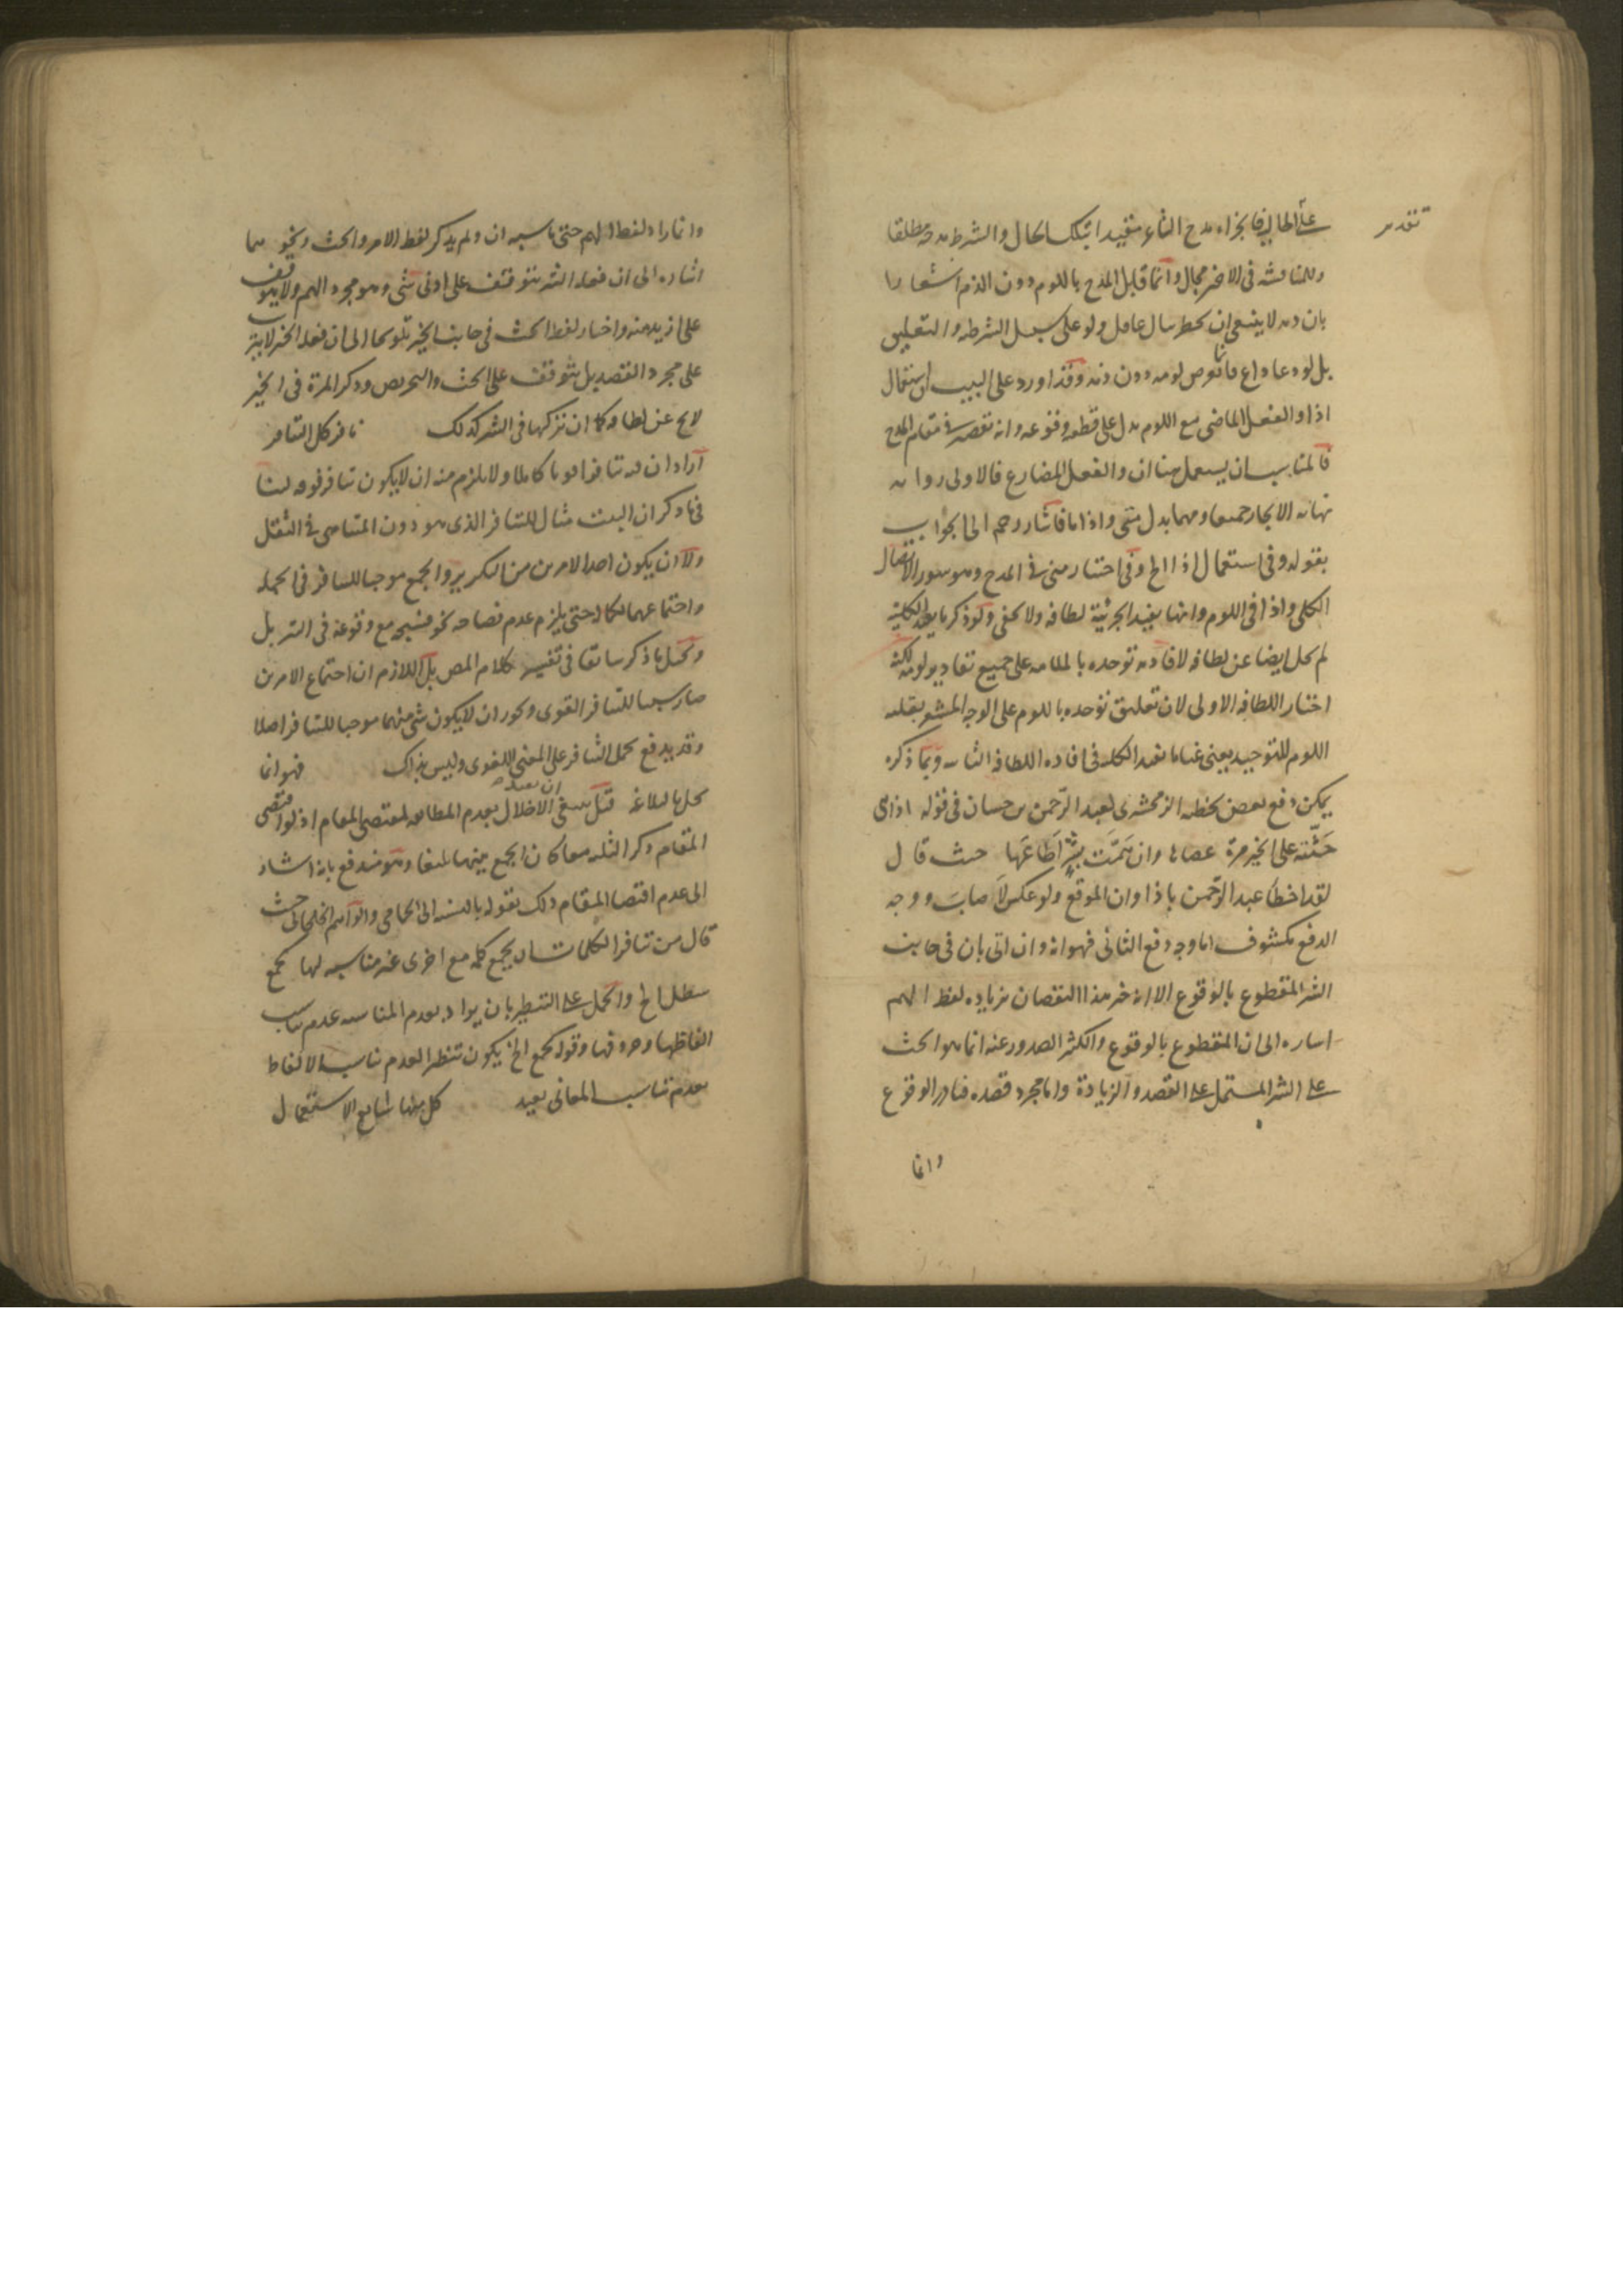 على الحال فالجزاء مدح الشاعر مقيدا بتلك الحال والشرط مدحه مطلقا
تقدير
وللمناقشة في الاخير مجال وانما قابل المدح باللوم دون الذم اشعارا
بان ذمه لا ينبغي ان يخطر ببال عاقل ولو على سبيل الشرطية والتعليق
بل لو دعا داع فانما لومه دون ذمه وقد اورد على البيت ان استعمال
اذا والفعل الماضي مع اللوم يدل على قطعية وقوعه وانه تقصير في مقام المدح
فالمناسب ان يستعمل هنا ان والفعل المضارع فالاولى رواية
نهاية الايجاز جميعا ومهما بدل متى واذا ما فاشار رحمه الى الجواب
بقوله وفي استعمال اذا الخ وفي اختيار متى في المدح وهو سور الاتصال
الكلي واذا في اللوم وانها يفيد الجزئية لطافة ولا يخفى ولو ذكر ما يفيد الكلية
لم يخل ايضا عن لطافة لافادته توحده بالملامة على جميع تقادير لومه لكنه
اختار اللطافة الاولى لان تعليق توحده باللوم على الوجه المشعر بقلة
اللوم للتوحيد يعني غناء ما يفيد الكلية في افادة اللطافة الثانية وبما ذكره
يمكن دفع بعض تخطئة الزمخشري لعبد الرحمن بن حسان في قوله اذا هي
حثته على الخير مرة عصاها وان همت بشر اطاعها حيث قال
لقد اخطأ عبد الرحمن باذا وان الموقع ولو عكس لاصاب ووجه
الدفع مكشوف اما وجه دفع الثاني فهو انه وان اتى بان في جانب
الشر المقطوع بالوقوع الا انه جبر هذا النقصان بزيادة لفظ الهم
اشارة الى ان المقطوع بالوقوع والكثير الصدور عنه انما هو الحث
على الشر المشتمل على القصد والزيادة واما مجرد قصده فنادر الوقوع
وانما
وانما زاد لفظ الهم حتى ناسبه ان ولم يذكر لفظ الامر والحث ونحوهما
اشارة الى ان فعله الشر يتوقف على ادنى شيء وهو مجرد الهم ولا يتوقف
على ازيد منه واختار لفظ الحث في جانب الخير تلويحا الى ان فعله الخير لا يترتب
على مجرد القصد بل يتوقف على الحث والتحريص وذكر المرة في الخير
لا يخ عن لطافة كما ان تركها في الشر كذلك تنافر كل التنافر
اراد ان فيه تنافرا قويا كاملا ولا يلزم منه ان لا يكون تنافر فوقه لينا
في ما ذكر ان البيت مثال للتنافر الذي هو دون المتناهي في الثقل
ولا ان يكون احد الامرين من التكرير والجمع موجبا للتنافر في الجملة
واجتماعهما لكماله حتى يلزم عدم فصاحة نحو فسبحه مع وقوعه في التنزيل
ويخل ما ذكر سابقا في تفسير كلام المص بل اللازم ان اجتماع الامرين
صار سببا للتنافر القوي ويجوز ان لا يكون شيء منهما موجبا للتنافر اصلا
وقد يدفع بحمل التنافر على المعنى اللغوي وليس بذاك فهو انما
يخل بالبلاغة قيل ينبغي ان يقيد الاخلال بعدم المطابقة لمقتضى المقام اذ لو اقتضى
المقام ذكر الثلاثة معا كان الجمع بينهما بليغا وهو مندفع بانه اشار
الى عدم اقتضاء المقام ذلك بقوله بالنسبة الى الحامي والوآهم الخلخالي حيث
قال من تنافر الكلمات ان يجمع كلمة مع اخرى غير مناسبة لها كجمع
سطل الخ والحمل على التنظير بان يراد بعدم المناسبة عدم تناسب
الفاظها وحروفها وقوله كجمع الخ يكون تنظيرا لعدم تناسب الالفاظ
بعدم تناسب المعاني بعيد كل منها شايع الاستعمال